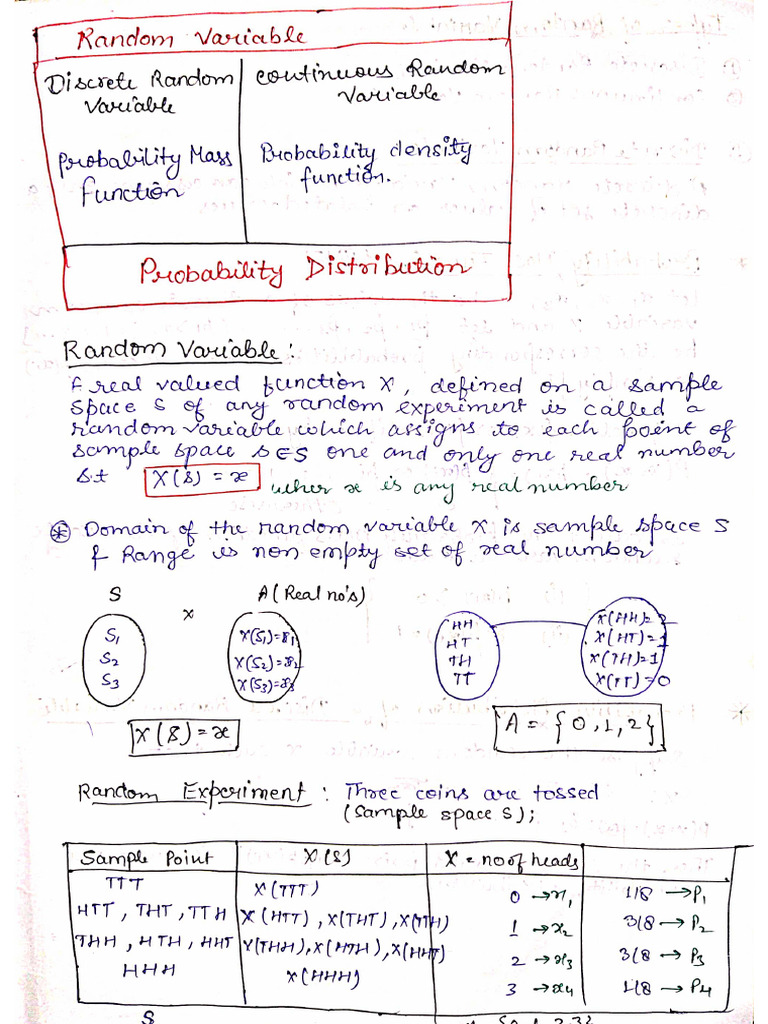 Random Variable
Discrete Random Variable
Continuous Random Variable
Probability Mass function
Probability density function.
Probability Distribution
Random Variable:
A real valued function X, defined on a sample
space S of any random experiment is called a
random variable which assigns to each point of
sample space s ∈ S one and only one real number
s.t X(s) = x wher x is any real number
⊛ Domain of the random variable X is sample space S
& Range is non empty set of real number.
S X A (Real no's)
S1 X(S1)=x1
S2 X(S2)=x2
S3 X(S3)=x3
X(s)=x
HH X(HH)=2
HT X(HT)=1
TH X(TH)=1
TT X(TT)=0
A = {0,1,2}
Random Experiment : Three coins are tossed
(Sample space S);
Sample Point X(s) X = no of heads
TTT X(TTT) 0 → x1 1/8 → P1
HTT, THT, TTH X(HTT), X(THT), X(TTH) 1 → x2 3/8 → P2
THH, HTH, HHT X(THH), X(HTH), X(HHT) 2 → x3 3/8 → P3
HHH X(HHH) 3 → x4 1/8 → P4
S